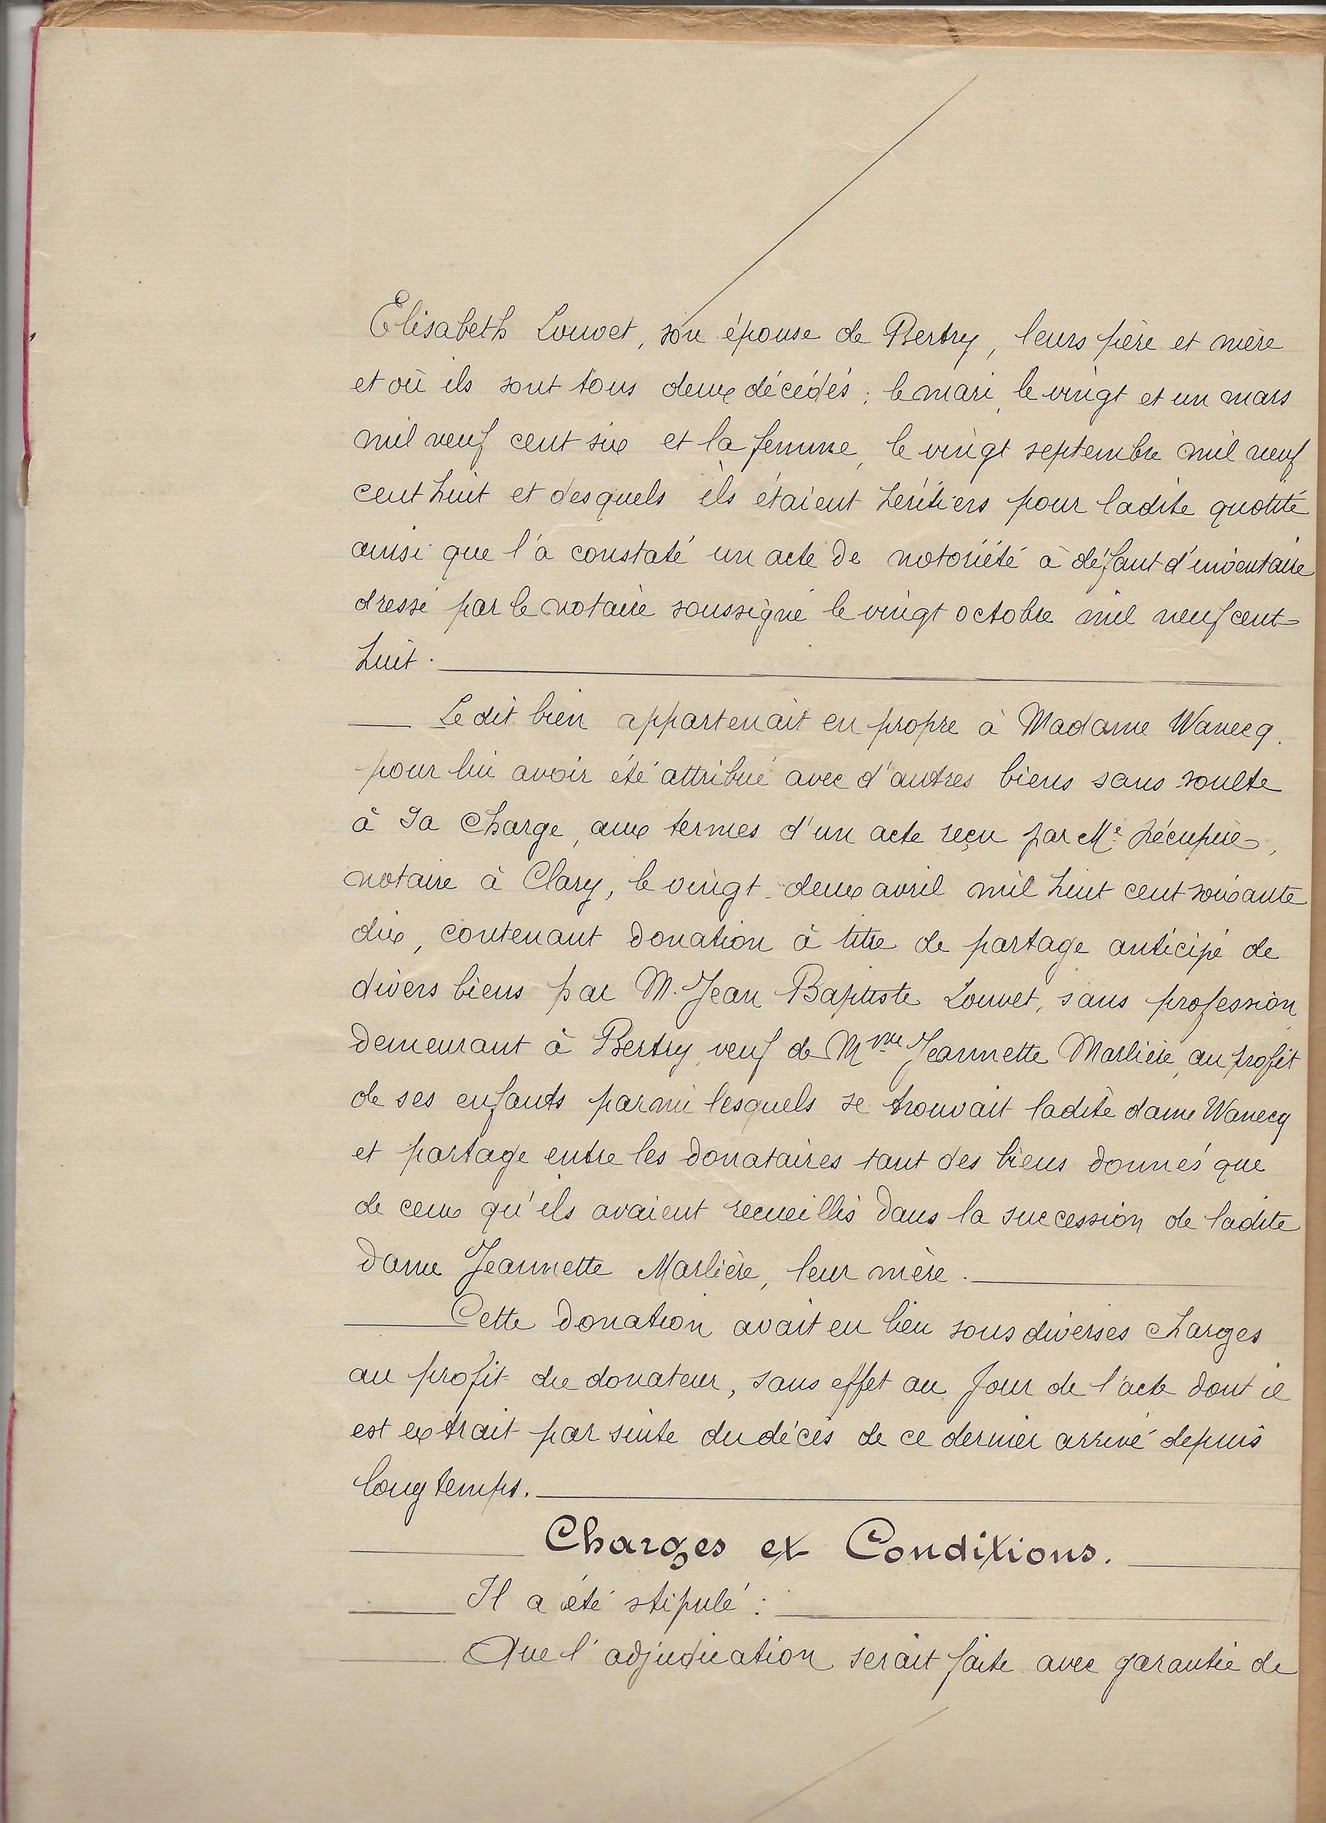 Elisabeth Louvet, son épouse de Bertry, leurs père et mère
et où ils sont tous deux décédés ; le mari, le vingt et un mars
mil neuf cent six et la femme, le vingt septembre mil neuf
cent huit et desquels ils étaient héritiers pour ladite quotité
ainsi que l'a constaté un acte de notoriété à défaut d'inventaire
dressé par le notaire soussigné le vingt octobre mil neuf cent
huit.
Le dit bien appartenait en propre à Madame Wanecq.
pour lui avoir été attribué avec d'autres biens sans soulte
à sa charge, aux termes d'un acte reçu par Me
notaire à Clary, le vingt-deux avril mil huit cent soixante
dix, contenant donation à titre de partage anticipé de
divers biens par M. Jean Baptiste Louvet, sans profession,
demeurant à Bertry, veuf de Mme Jeannette Marlière, au profit
de ses enfants parmi lesquels se trouvait ladite dame Wanecq
et partage entre les donataires tant des biens donnés que
de ceux qu'ils avaient recueillis dans la succession de ladite
dame Jeannette Marlière, leur mère.
Cette donation avait eu lieu sous diverses charges
au profit du donateur, sans effet au jour de l'acte dont il
est extrait par suite du décès de ce dernier arrivé depuis
longtemps.
Charges et Conditions.
Il a été stipulé :
Que l'adjudication serait faite avec garantie de